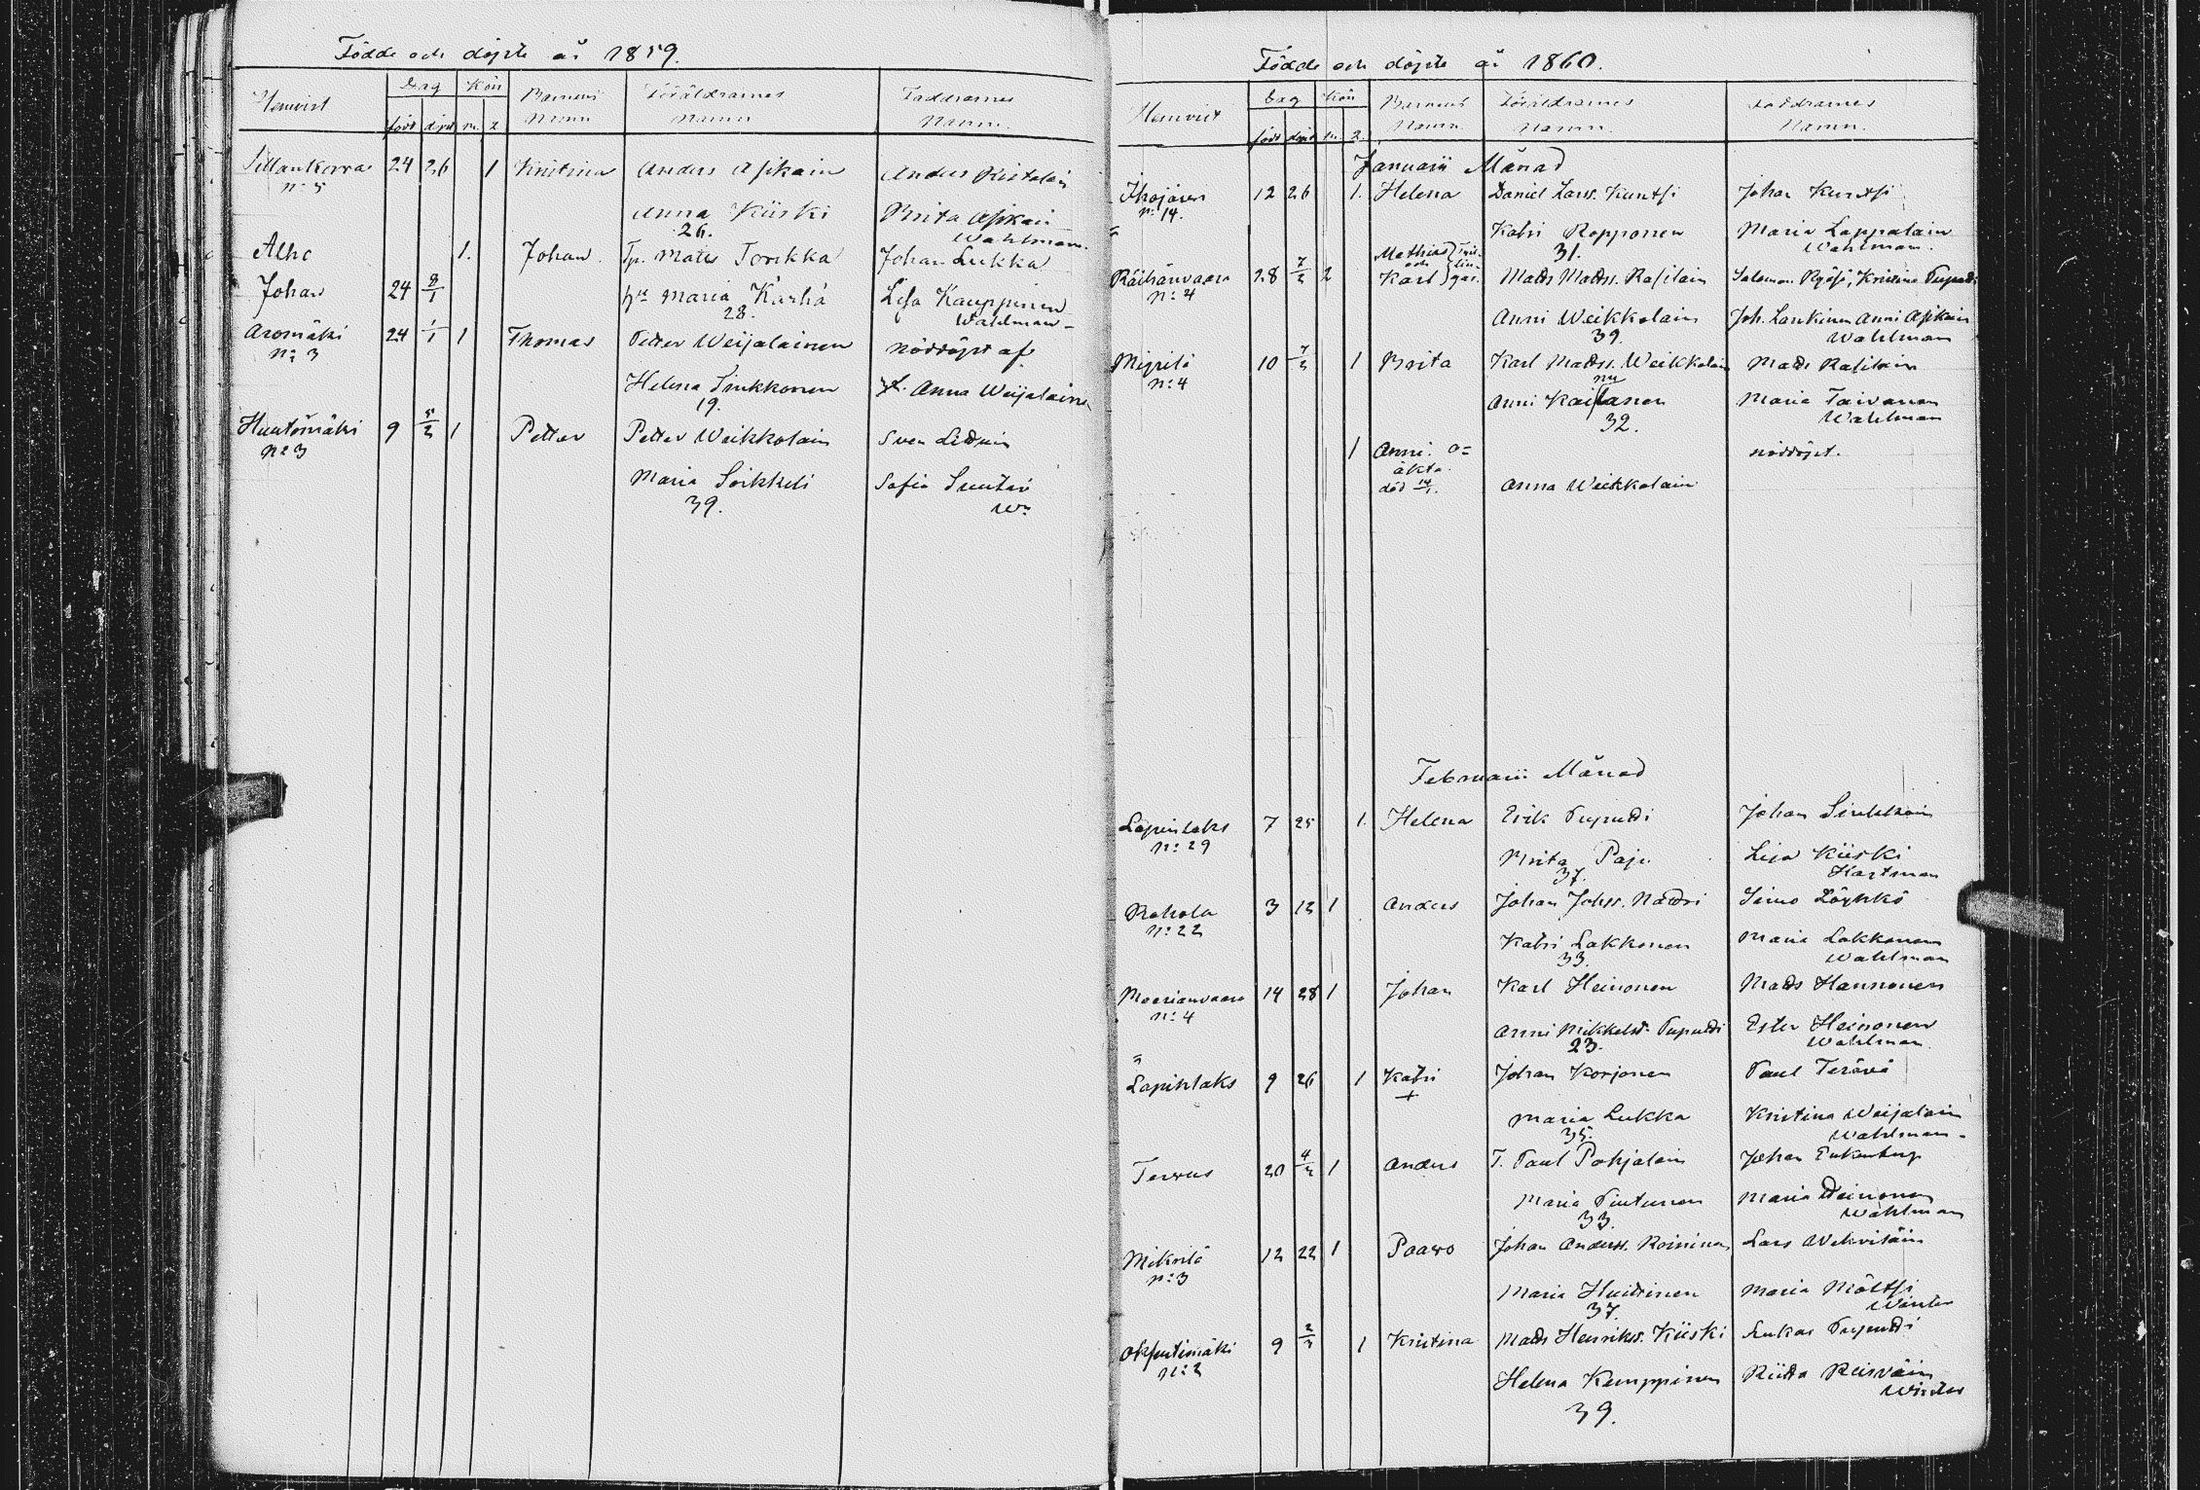 Födde och döpte år 1859.
Hemvist Dag Kön Barnens Föräldrarnes Faddrarnes
född döpt m. q. Namn Namn Namn.
24 26 1 Kristina Anders Asikain Anders
n:o 5
Anna Kiiski Brita Asikain
26. Wahlman.
Alho 1. Johan Tp. Mats Torikka Johan Lukka
Johan 24 8/1 hu Maria Kärhä Lisa Kauppinen
28. Wahlman
Aromäki 24 1/1 1 Thomas Petter Weijalainen nöddöpt af
n:o 3
Helena Sinkkonen Anna Weijalainen
19.
9 5/2 1 Petter Petter Weikkolain Sven
n:o 3
Maria Soikkeli Sofia Suutari
39. Wn

Födde och döpte år 1860.
Hemvist Dag Kön Barnens Föräldrarnes Faddrarnes
född döpt m. q. Namn Namn. Namn.
Januarii Månad
Ihojärvi 12 26 1. Helena Daniel Larss. Kuntsi Johan Kuntsi
n:o 14.
Katri Ropponen Maria Lappalain
31. Wahlman.
Mathias och Karl Tvillingar.
Räihänvaara 28 7/2 2 Matts Matss. Rasilain Salomon Kristina Puputti
n:o 4
Anni Weikkolain Joh. Lankinen Anni Asikain
39. Wahlman
10 7/2 1 Brita Karl Matss. Weikkolain Matts Rasilain
n:o 4
Anni Maria Taivanen
32. Wahlman
1 Anni. o= nöddöpt.
äkta.
död 14/1. Anna Weikkolain
Februarii Månad
Lapinlaks 7 25 1. Helena Erik Puputti Johan Sinkkoin
n:o 29
Brita Paju Lisa Kiiski
37. Hartman
Rahola 3 12 1 Anders Johan Johss. Näätri Simo Löyhkö
n:o 22
Katri Lakkonen Maria Lakkonen
33. Wahlman
14 28 1 Johan Karl Heinonen Matts Hannonen
n:o 4
Anni Mikkelsd. Puputti Ester Heinonen
23. Wahlman.
Lapinlaks 9 26 1 Katri Johan Korjonen Paul Terävä
+
Maria Lukka Kristina Weijalain
35. Wahlman
Tervus 20 4/3 1 Anders T. Paul Pohjalain Johan
Maria Maria Heinonen
33. Wahlman
Mikrilä 12 22 1 Paavo Johan Anderss. Roininen Lars
n:o 3
Maria Huitinen Maria Möltsi
37. Winter
9 2/3 1 Kristina Matts Henrikss. Kiiski Lukas Puputti
n:o 2
Helena Kemppinen Riitta
39. Winter